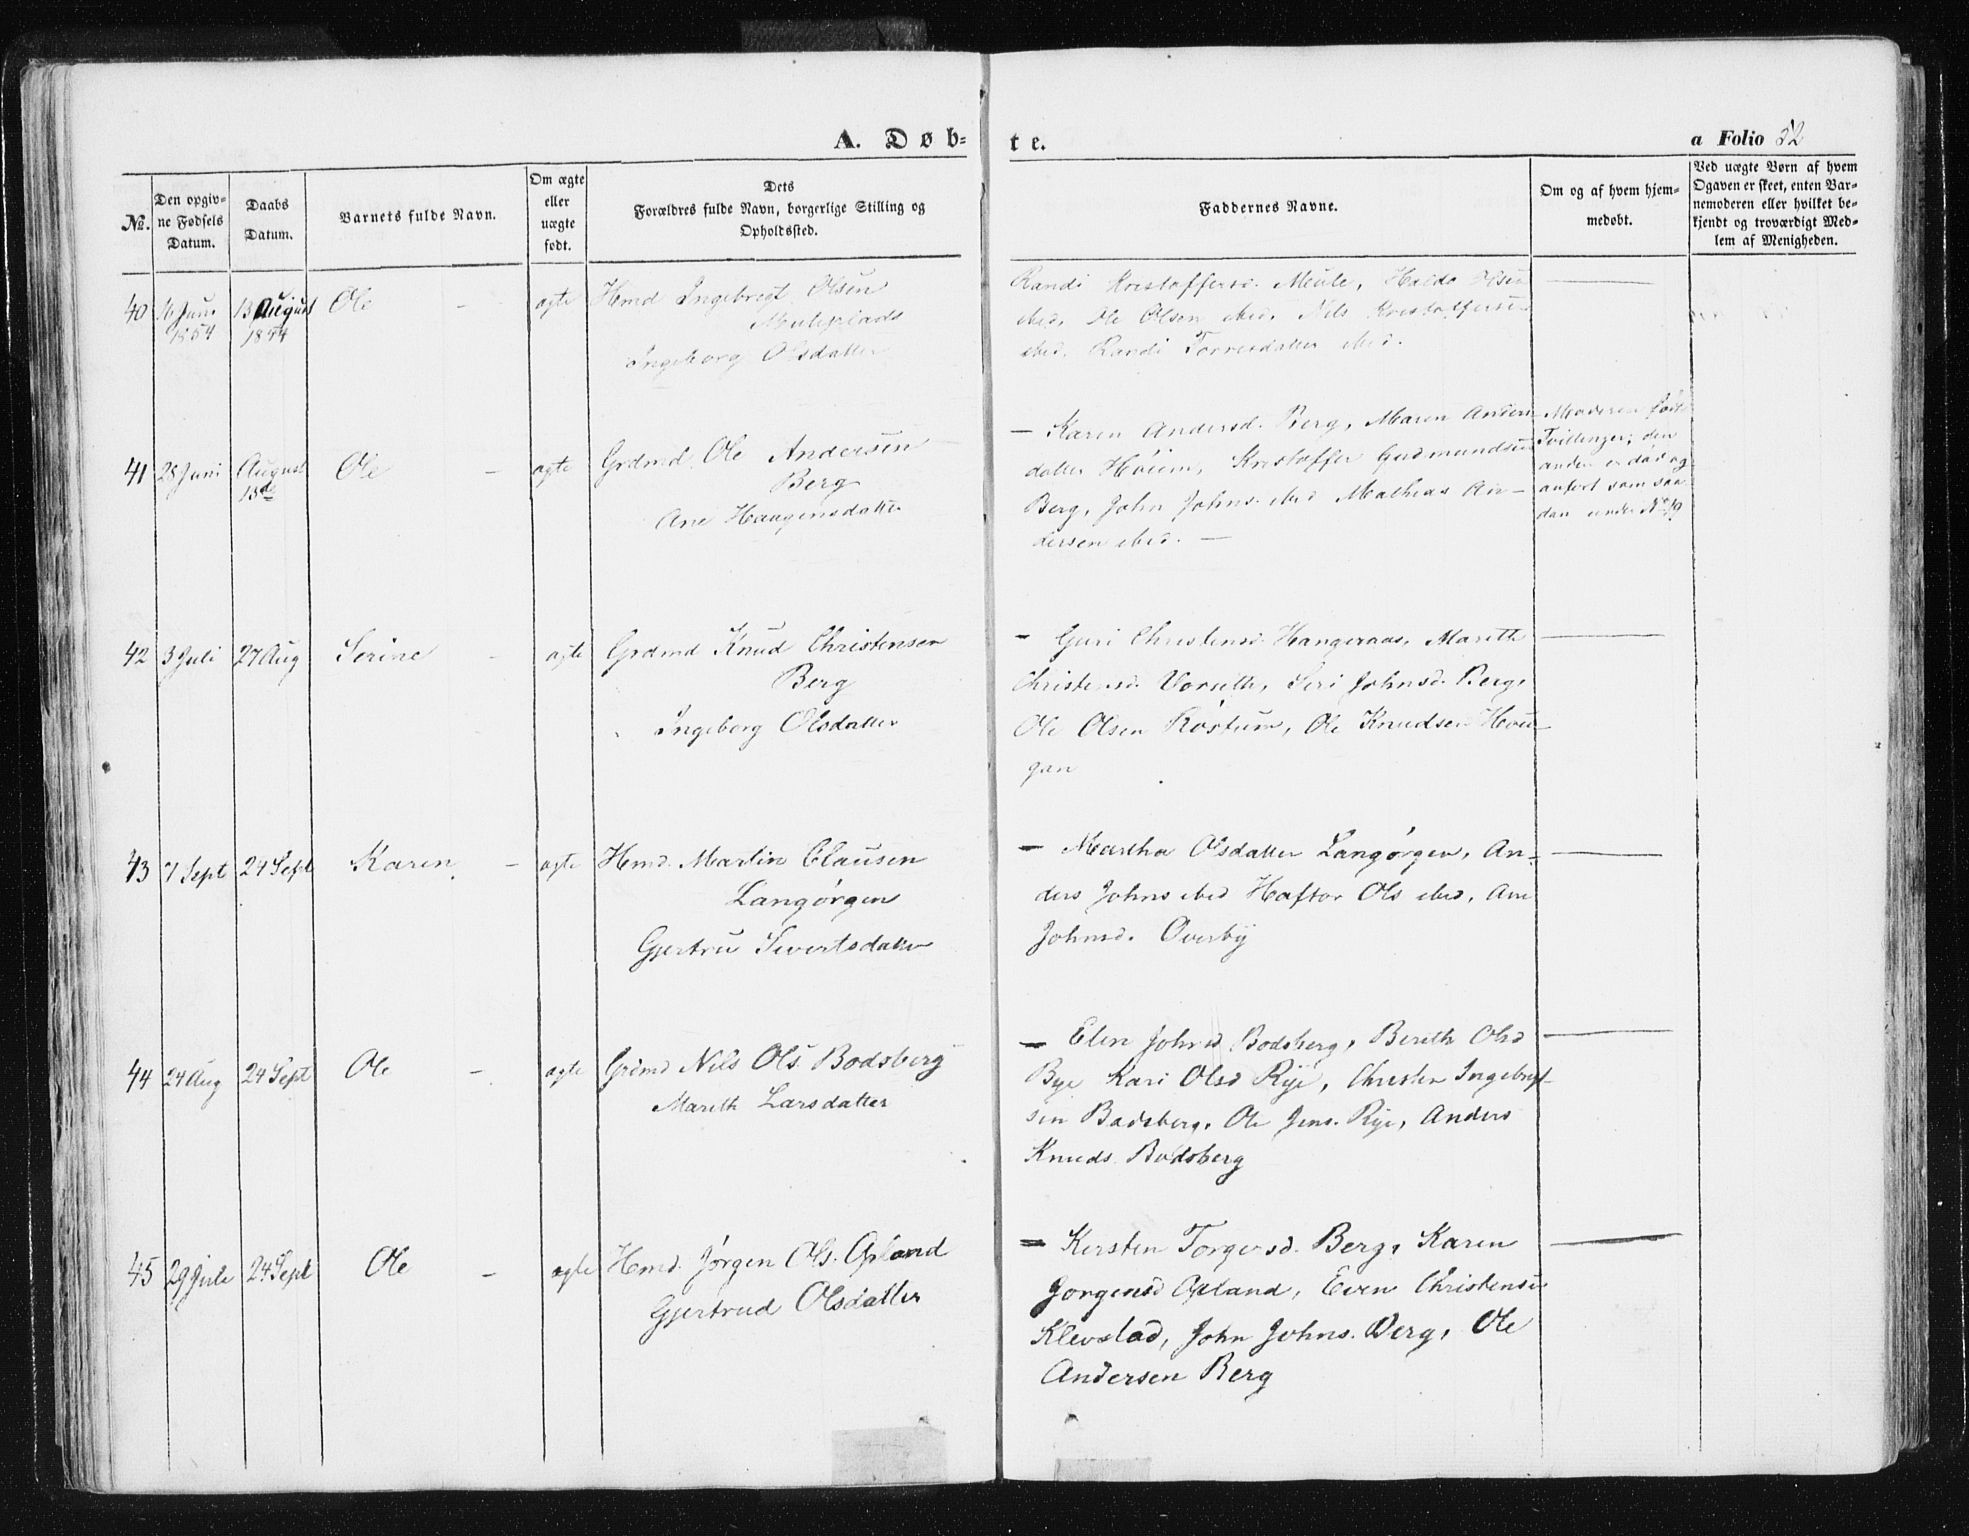 A. Døb-
te.
a Folio 32
No.
Den opgiv-
ne Fødsels
Datum.
Daabs
Datum.
Barnets fulde Navn.
Om ægte
eller
uægte
født.
Dets
Forældres fulde Navn, borgerlige Stilling og
Opholdssted.
Faddernes Navne.
Om og af hvem hjem-
medøbt.
Ved uægte Børn af hvem
Opgaven er skeet, enten Bar-
nemoderen eller hvilket be-
kjendt og troværdigt Med-
lem af Menigheden.
40 16 Juni 13 August Ole - ægte Hmd Ingebrigt Olsen
1854 1854
Ingeborg Olsdatter
Randi Kristoffersd. Meule, Olsen
ibid, Ole Olsen ibid, Nils Kristoffersen
ibid, Randi Torresdatter ibid.
41 28 Juni August Ole - ægte Grdmd. Ole Andersen
13de Berg
Ane Haagensdatter
- Karen Andersd. Berg, Maren Anders
datter Høiem, Kristoffer Gudmundsen
Berg, John Johns. ibid Mathias An-
dersen ibid. -
Moderen født
Tvillinger, den
anden er død og
anført som saa
dan under No 19
42 3 Juli 27 Aug Serine - ægte Grdmd Knud Christensen
Berg
Ingeborg Olsdatter
- Guri Christensd. Hangeraas, Marith
Christensd. Vorseth, Siri Johnsd. Berg,
Ole Olsen Røstum, Ole Knudsen Hou-
gan
43 7 Sept 24 Sept Karen - ægte Hmd. Martin Clausen
Langørgen
Gjertru Sivertsdatter
- Martha Olsdatter Langørgen, An-
ders Johns ibid Haftor Ols ibid, Ane
Johnsd. Overby
44 24 Aug 24 Sept Ole - ægte Grdmd Nils Ols. Bodsberg
Marith Larsdatter
- Elen Johnsd Bodsberg, Berith Olsd
Bye Kari Olsd Rye, Christen Ingebrigt-
sen Badsberg, Ole Jens. Rye, Anders
Knuds. Bodsberg
45 29 Juli 24 Sept Ole - ægte Hmd. Jørgen Ols. Opland
Gjertrud Olsdatter
- Kersten Torgersd. Berg, Karen
Jørgensd Opland, Even Christensen
Klevstad, John Johns. Berg, Ole
Andersen Berg